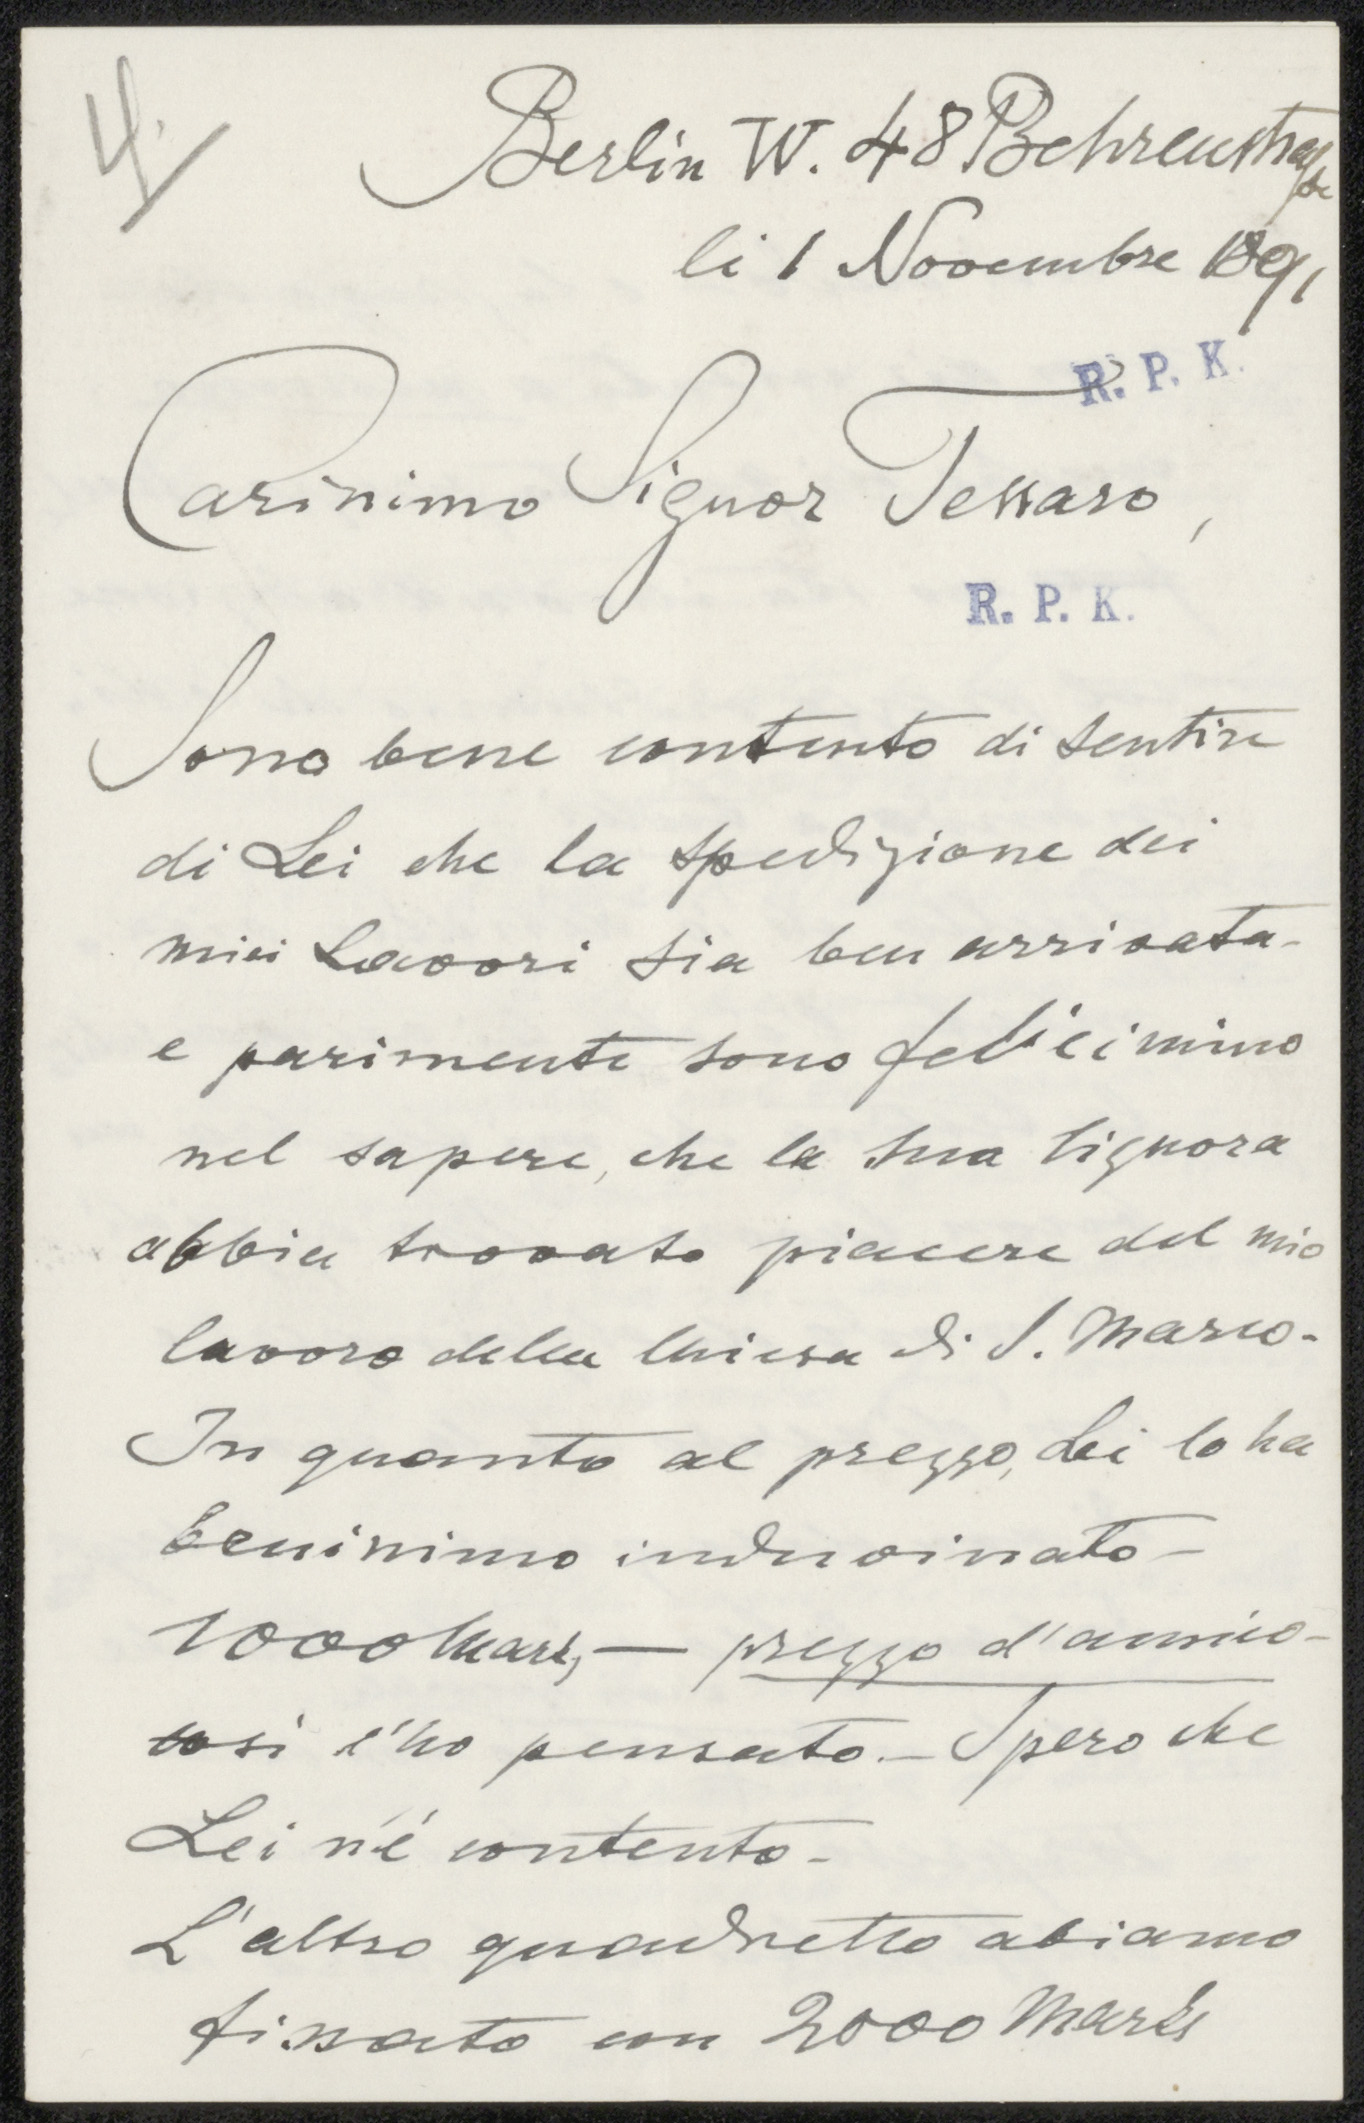 4.
Berlin W. 48 Behrenstrasse
li 1 Novembre 1891
R. P. K.
Carissimo Signor Tessaro,
R. P. K.
Sono bene contento di sentire
di Lei che la spedizione dei
miei Lavori sia ben arrivata-
e parimente sono felicissimo
nel sapere, che la sua Signora
abbia trovato piacere del mio
lavoro della Chiesa di S. Marco.
In quanto al prezzo, Lei lo ha
benissimo indovinato-
1000 Mark, — prezzo d'amico-
così l'ho pensato.- Spero che
Lei n'é contento-
L'altro quadretto abiamo
fissato con 2000 Mark